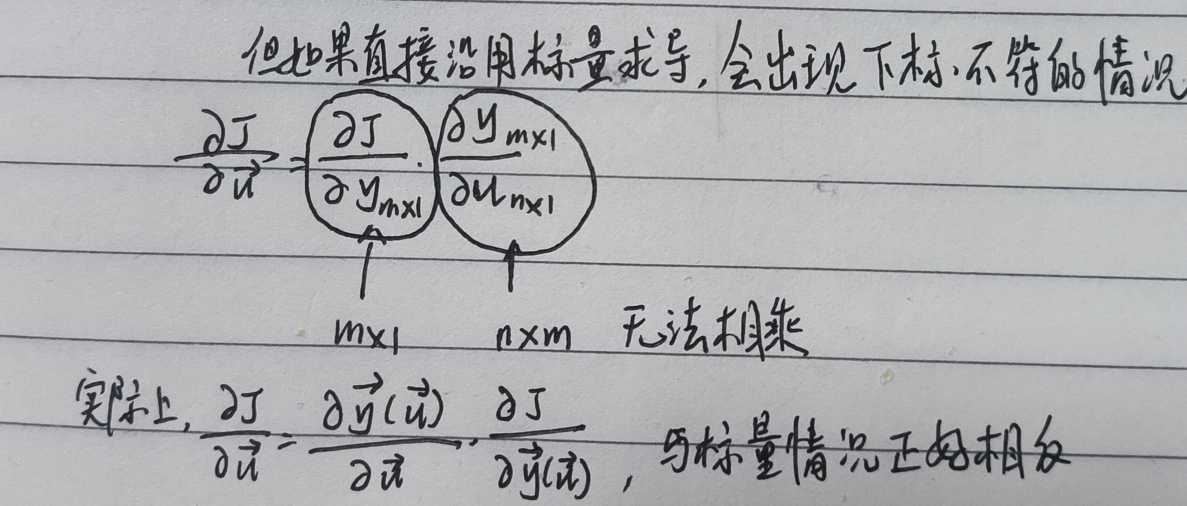 但如果直接沿用标量求导,会出现下标不符的情况
∂J/∂u⃗ = ∂J/∂y_{m×1} · ∂y_{m×1}/∂u_{n×1}
m×1 n×m 无法相乘
实际上, ∂J/∂u⃗ = ∂y⃗(u⃗)/∂u⃗ · ∂J/∂y⃗(u⃗), 与标量情况正好相反